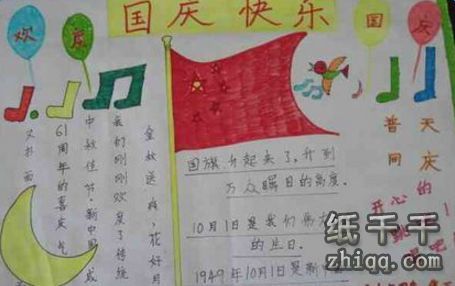 国庆快乐
欢 度
国 庆
金秋送爽,花好月
我们刚刚欢度了传统
中秋佳节,新中国成
61周年的喜庆气
又扑面
国旗升起来了,升到
万众瞩目的高度。
10月1日是我们伟大
的生日.
1949年10月1日是新中国
普天
同庆
开心的
跳
吧!
纸千千
zhiqq.com